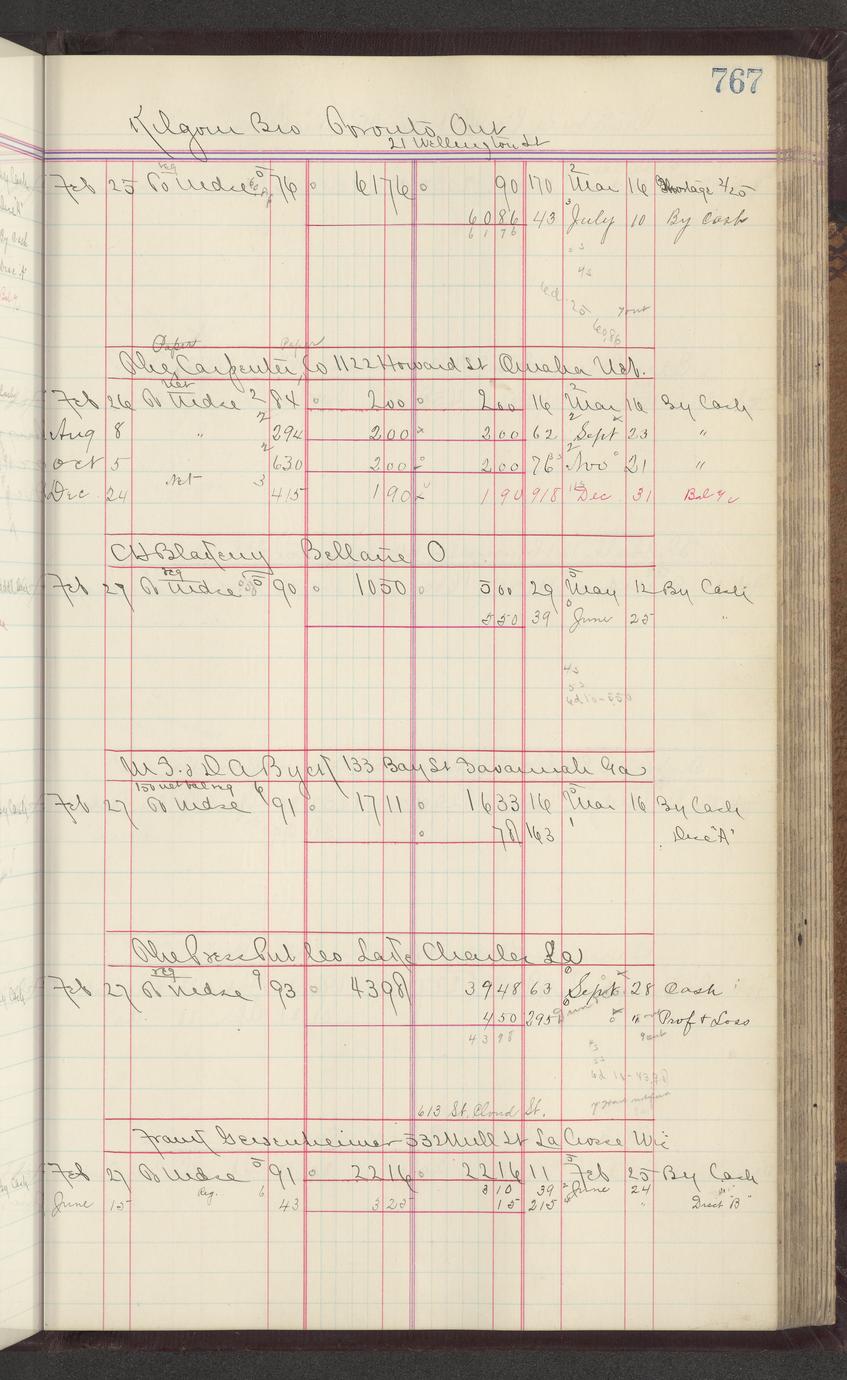 767
Kilgour Bro Toronto Ont
21 Wellington St
Feb 25 To Mdse 5 76 6176 90 170 Mar 16 Shortage 2/25
6086 43 July 10 By Cash
6176
60.86
Paper Paper
The Carpenter Co 1122 Howard St Omaha Neb.
Net
Feb 26 To Mdse 2 84 200 200 16 Mar 16 By Cash
Aug 8 " 2 294 200 200 62 Sept 23 "
Oct 5 2 630 200 200 76 Nov 21 "
Dec 24 Net 3 415 190 190 918 Dec 31 Bal
Bellaire O
reg
Feb 27 To Mdse 5 90 1050 500 29 May 12 By Cash
550 39 June 25 "
4s
5s
6d 10-550
133 Bay St Savannah Ga
Feb 27 To Mdse 6 91 1711 1633 16 Mar 16 By Cash
78 163 Disc "A"
The Press Pub Co Lake Charles La
reg
Feb 27 To Mdse 9 93 4398 3948 63 Sept 28 Cash
450 295 Prof & Loss
4398
4s
5s
6d 10-43.98
613 St. Cloud St.
Frank Geisenheimer 532 Mill St La Crosse Wis
Feb 27 To Mdse 5 91 2216 2216 11 Feb 25 By Cash
310 39 June 24 "
June 15 Reg. 6 43 325 15 215 " Disct "B"